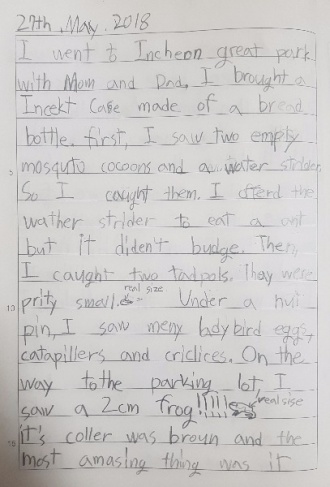 27th, May. 2018
I went to Incheon great park
with Mom and Dad, I brought a
Incekt Case made of a bread
bottle. first, I saw two empty
mosquto cocoons and a water strider,
So I caught them. I offerd the
wather strider to eat a ant
but it diden't budge. Then,
I caught two tadpols. They were
prity small. real size Under a
pin, I saw meny ladybird eggs,
catapillers and On the
way tothe parking lot I
saw a 2cm frog!!!!! real sise
it's coller was broun and the
most amasing thing was it